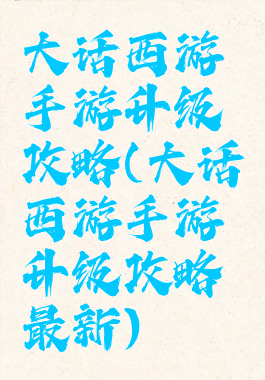 大话西游
手游升级
攻略(大话
西游手游
升级攻略
最新)